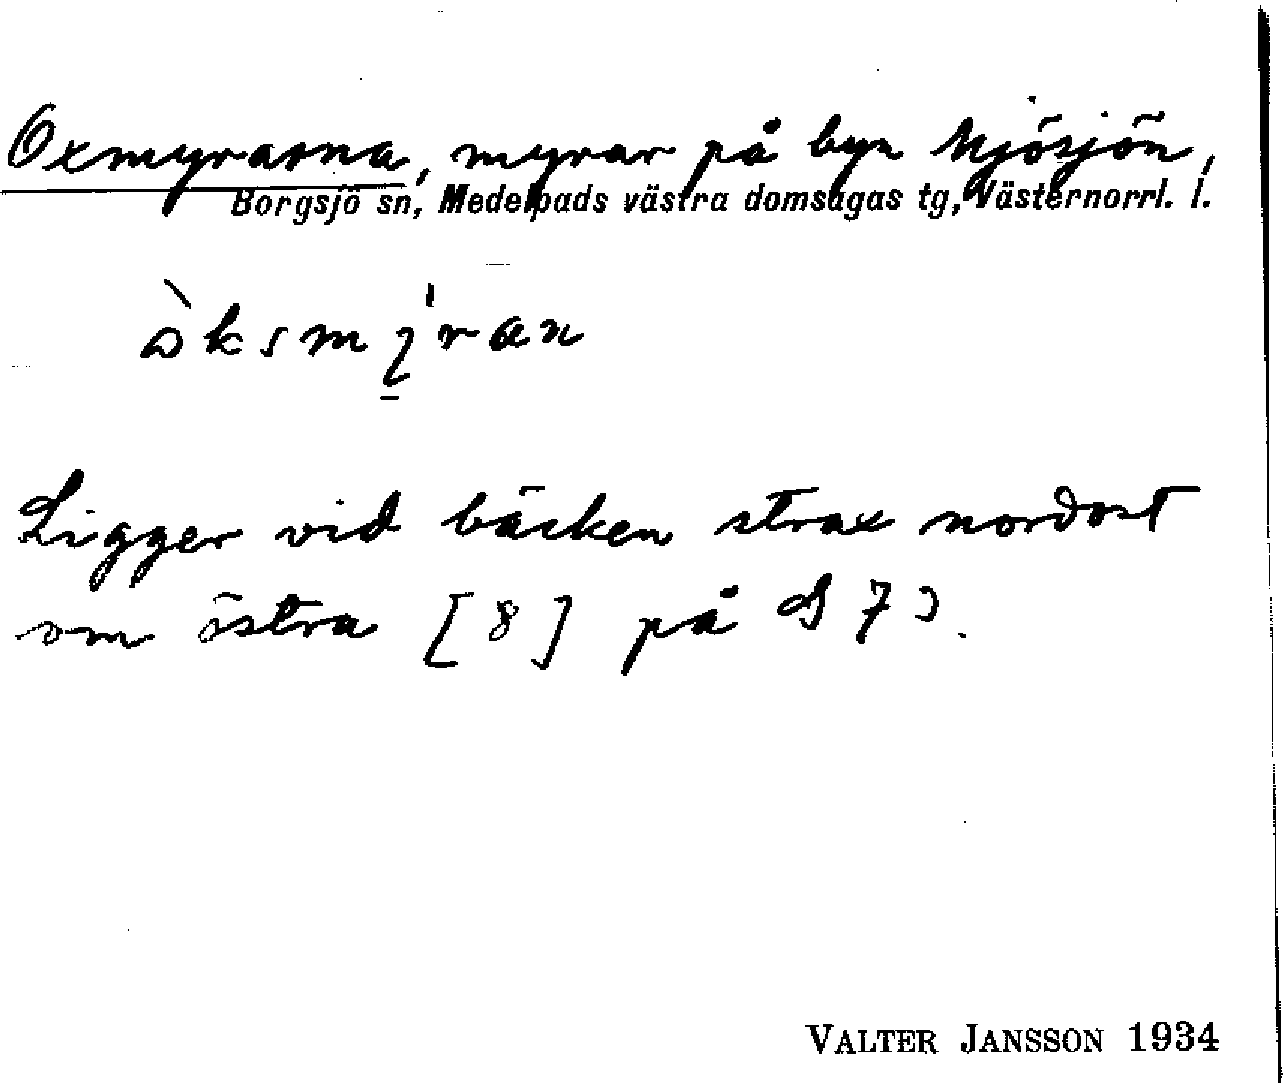 Oxmyrarna, myrar på byn Mjösjön,
Borgsjö sn, Medelpads västra domsagas tg, Västernorrl. l.
òksmy̠ˈran
Ligger vid bäcken strax nordost
om östra [8] på
VALTER JANSSON 1934